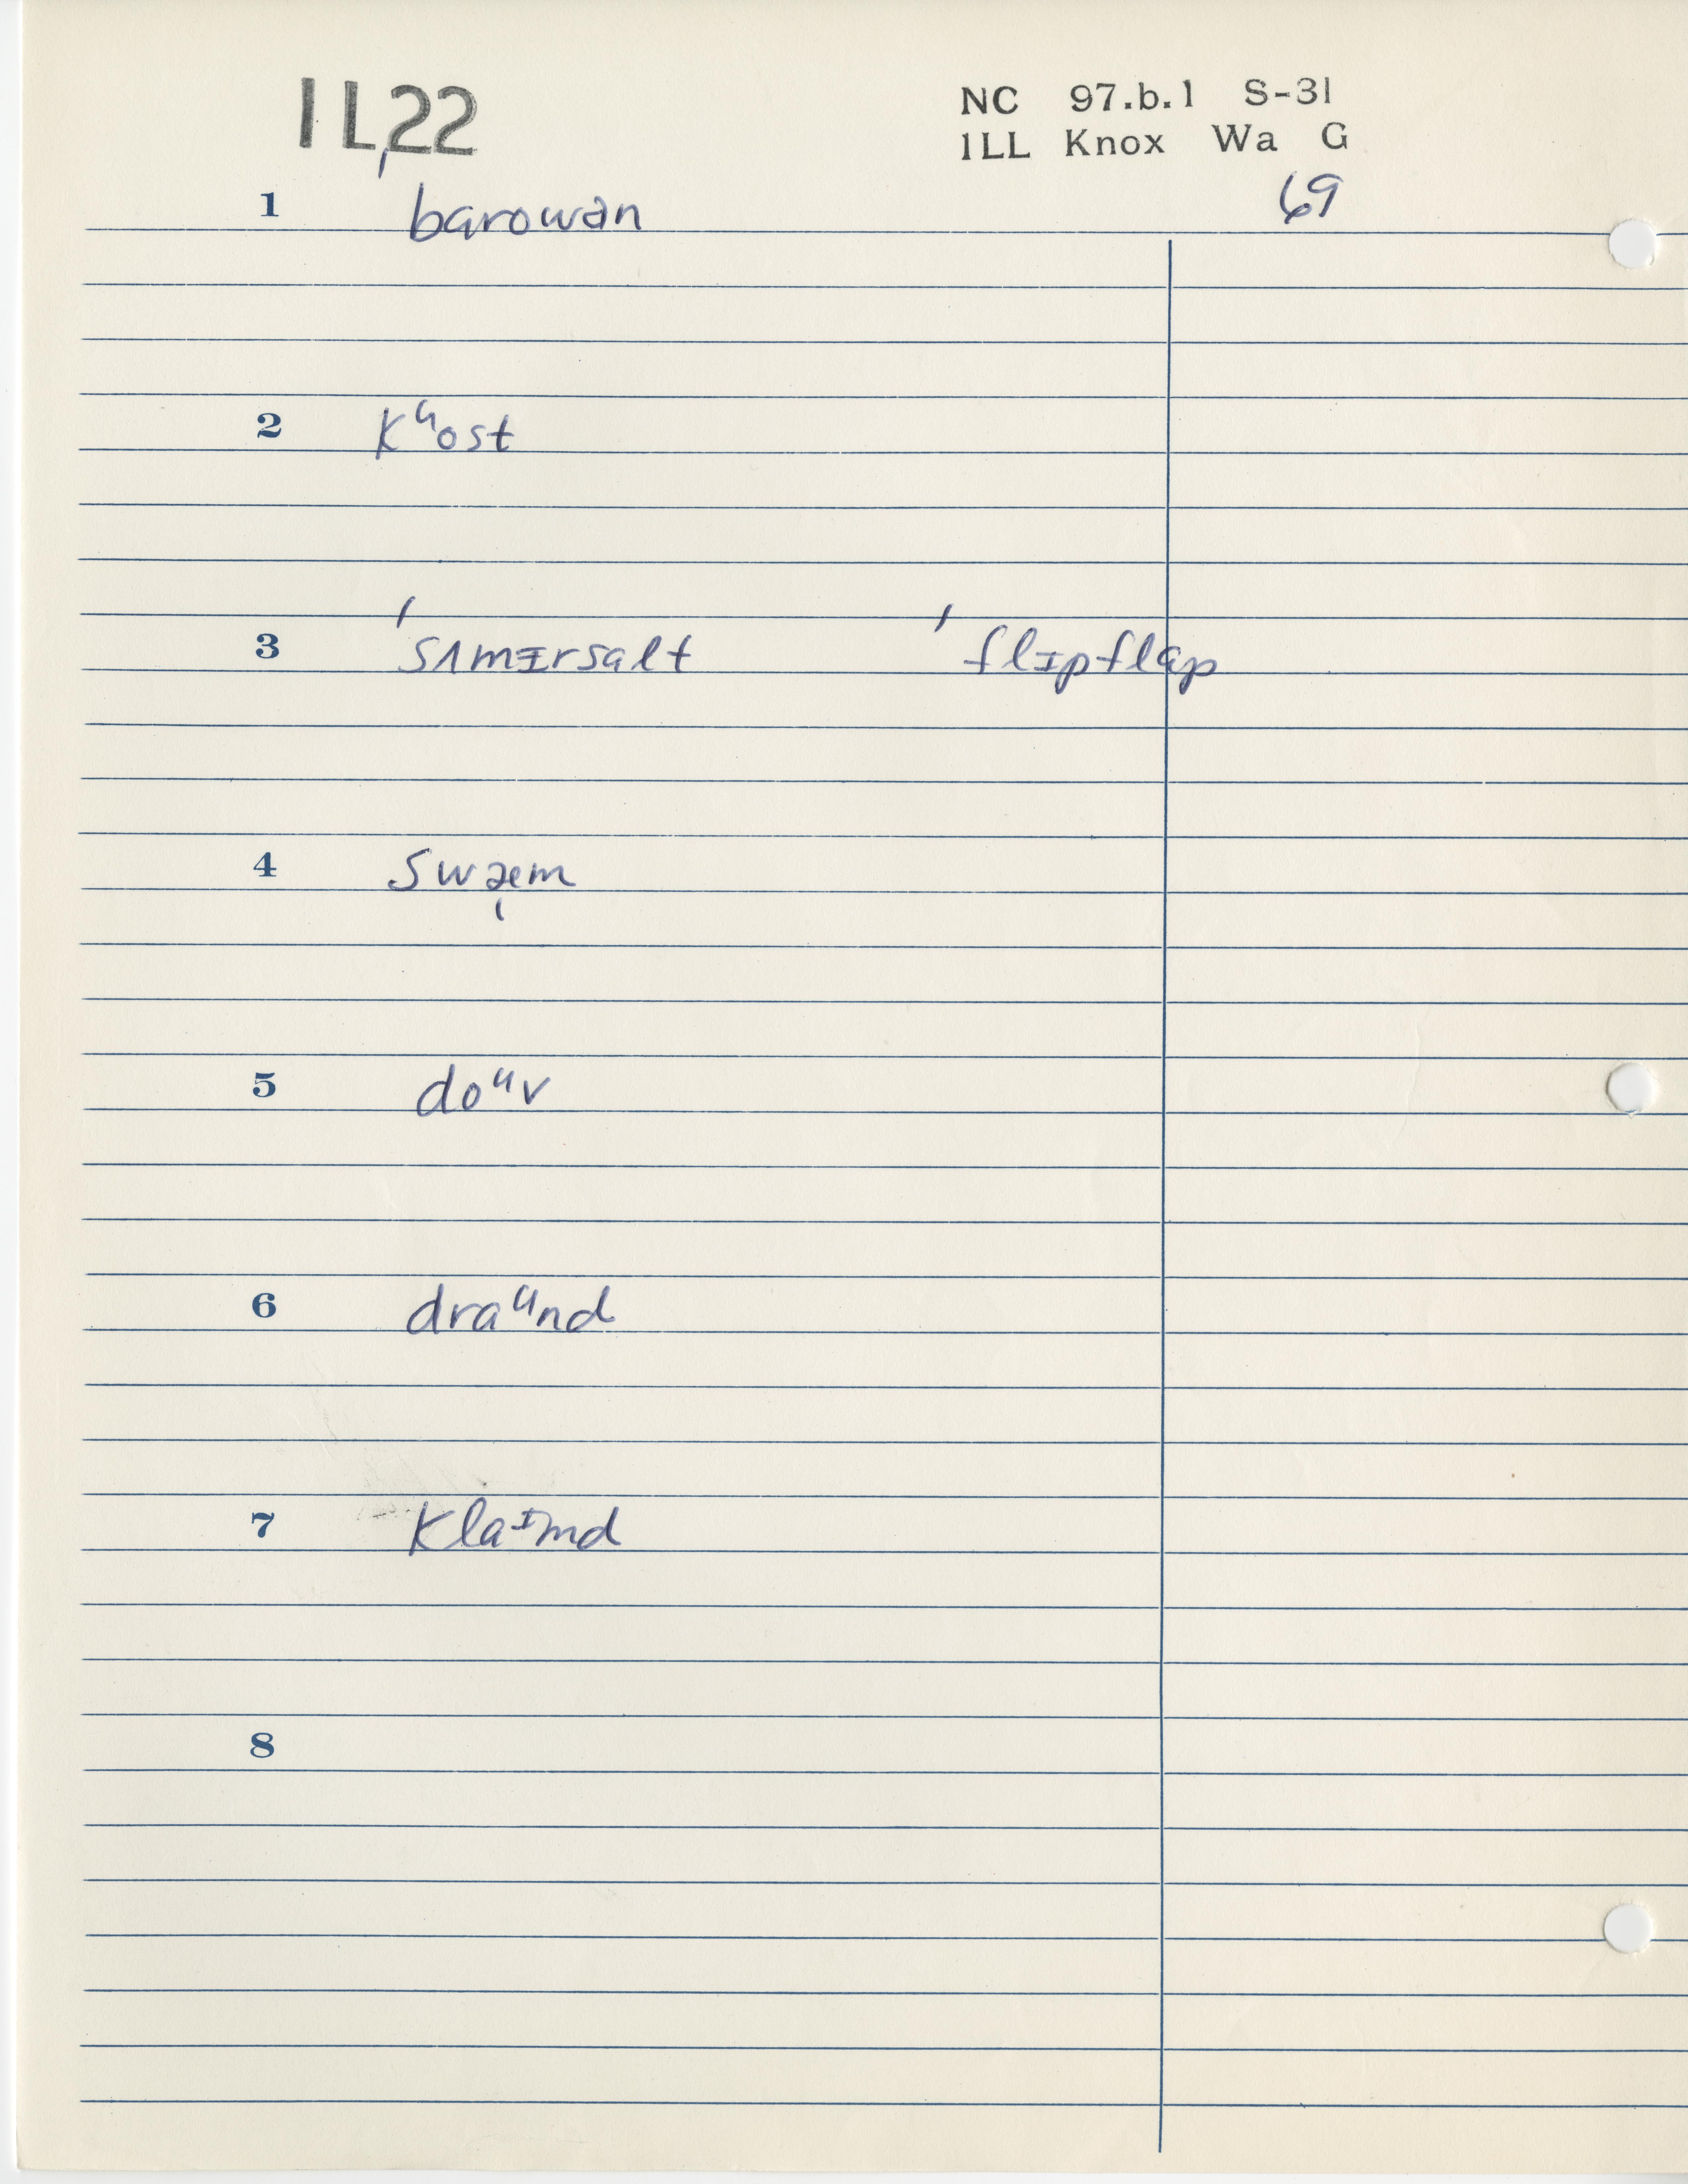 1L22
NC 97.b.1 S-31
1LL Knox Wa G
69
1 ˈbarowən
2 kᵘost
3 ˈsʌmɪrsalt ˈflɪpflap
4 swəem
5 doᵘv
6 draᵘnd
7 klaᶦmd
8